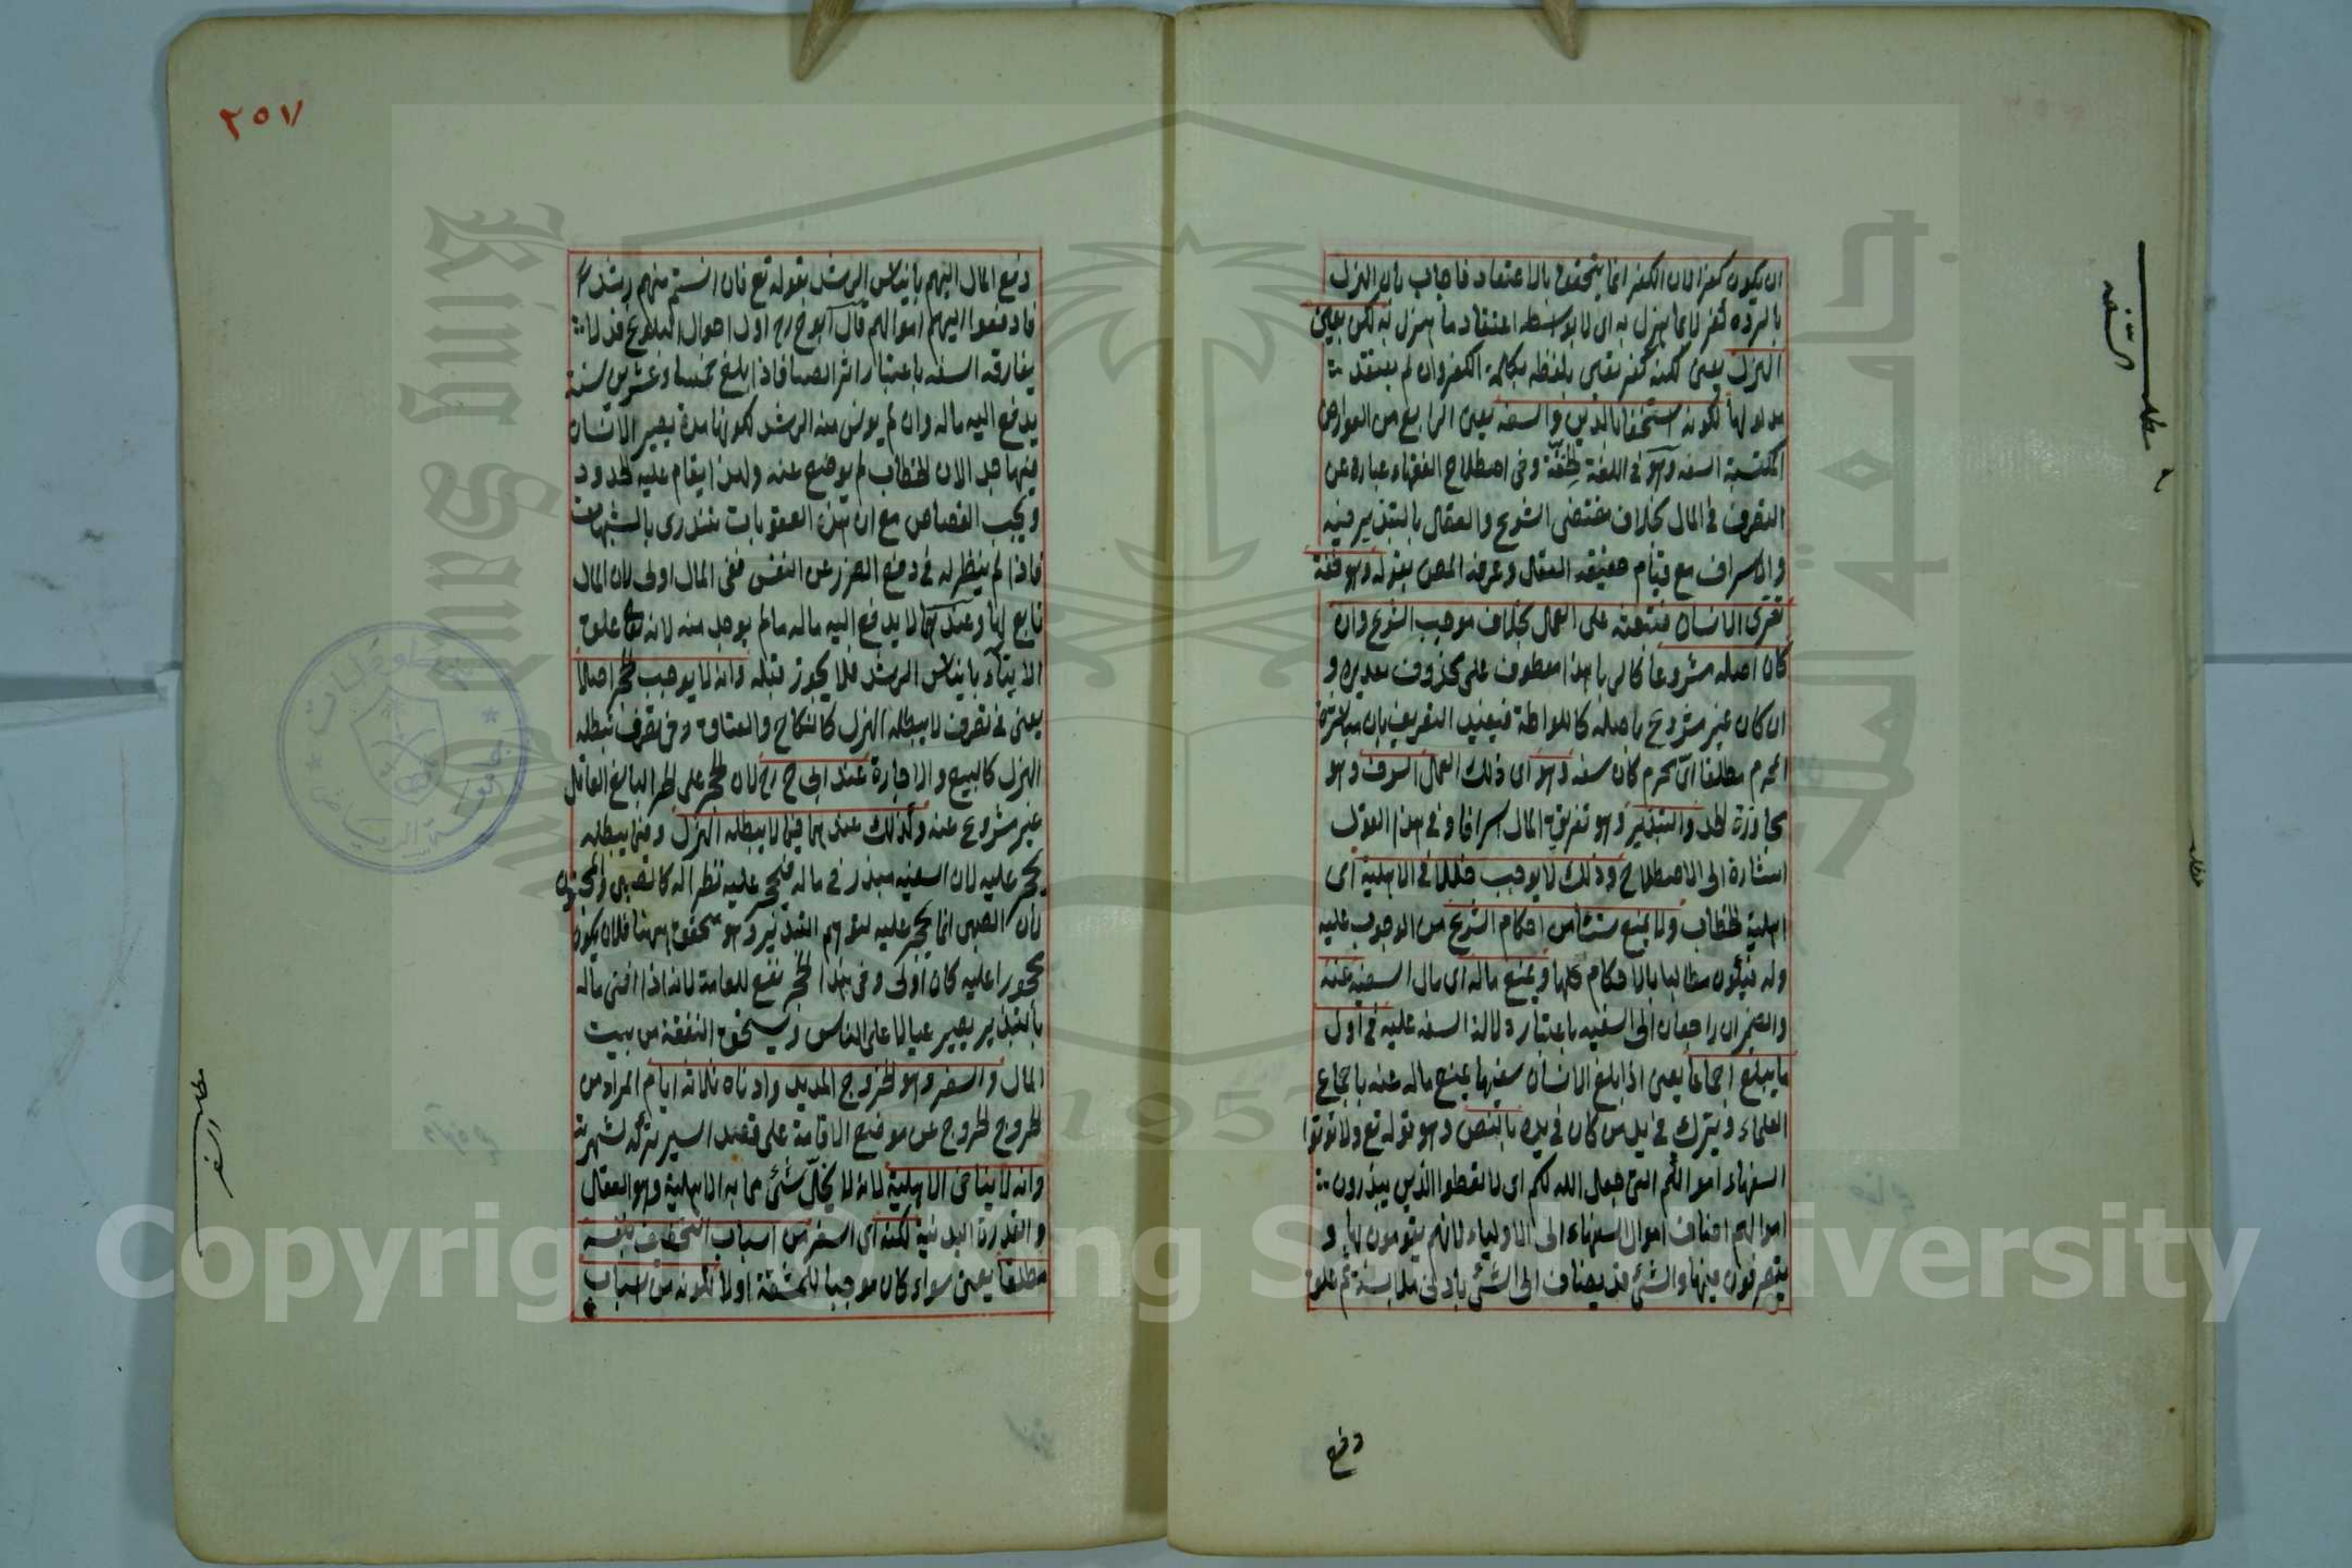 ان يكون كفرا لان الكفر انما يتحقق بالاعتقاد فاجاب بان الهزل
بالردة كفر لا بما هزل به اى لا بواسطة اعتقاد ما هزل به لكن بعين
الهزل يعنى لكنه كفر بقبى بلفظه بكلمة الكفر وان لم يعتقد
مدلولها لكونه استخفافا بالدين والسفه يعنى الرابع من العوارض
المكتسبة السفه وهو فى اللغة خفة وفى اصطلاح الفقهاء عبارة عن
التصرف فى المال بخلاف مقتضى الشرع والعقل بالتبذير فيه
والاسراف مع قيام حقيقة العقل وعرفه المص بقوله وهو خفة
تعترى الانسان فتبعثه على العمل بخلاف موجب الشرع وان
كان اصله مشروعا كالربا هذا معطوف على محذوف تقديره و
ان كان غير مشروع باصله كاللواطة فيفيد التعريف بان مباشرة
المحرم مطلقا اىّ محرم كان سفه وهو اى ذلك العمل السرف وهو
مجاوزة الحد والتبذير وهو تفريق المال اسرافا وفى هذا القول
اشارة الى الاصطلاح وذلك لا يوجب خللا فى الاهلية اى
اهلية الخطاب ولا يمنع شيئا من احكام الشرع من الوجوب عليه
وله فيكون مطالبا بالاحكام كلها ويمنع ماله اى مال السفيه عنه
والضميران راجعان الى السفيه باعتبار دلالة السفه عليه فى اول
ما يبلغ اجماعا يعنى اذا بلغ الانسان سفيها يمنع ماله عنه باجماع
العلماء ويترك فى يد من كان فى يده بالنص وهو قوله تع ولا تؤتوا
السفهاء اموالكم التى جعل الله لكم اى لا تعطوا الذين يبذرون
اموالهم اضاف اموال السفهاء الى الاولياء لانهم يقومون لها و
يتصرفون فيها والشئ قد يضاف الى الشئ بادنى ملابسة ثم علق
دفع
مطلب السفه
٢٥٧
دفع المال اليهم بايناس الرشد بقوله تع فان انستم منهم رشدا
فادفعوا اليهم اموالهم قال ابو ح رح اول احوال البلوغ قد لا
يفارقه السفه باعتبار اثر الصبا فاذا بلغ خمسا وعشرين سنة
يدفع اليه ماله وان لم يونس منه الرشد لكونها مدة يصير الانسان
فيها جدا لان الخطاب لم يوضع عنه ولهذا يقام عليه الحدود
ويجب القصاص مع ان هذه العقوبات تندرى بالشبهات
فاذا لم ينظر له فى دفع الضرر عن النفس ففى المال اولى لان المال
تابع لها وعندهما لا يدفع اليه ماله ما لم يوجد منه لانه تعا علق
الايتاء بايناس الرشد فلا يجوز قبله وانه لا يوجب الحجر اصلا
يعنى فى تصرف لا يبطله الهزل كالنكاح والعتاق وفى تصرف يبطله
الهزل كالبيع والاجارة عند ابى ح رح لان الحجر على الحر البالغ العاقل
غير مشروع عنه وكذلك عندهما فيما لا يبطله الهزل وفيما يبطله
يحجر عليه لان السفيه مبذر فى ماله فيحجر عليه نظرا له كالصبى والمجنون
لان الصبى انما يحجر عليه لتوهم التبذير وهو متحقق ههنا فلان يكون
محجورا عليه كان اولى وفى هذا الحجر نفع للعامة لانه اذا افنى ماله
بالتبذير يصير عيالا على الناس ويستحق النفقة من بيت
المال والسفر وهو الخروج المديد وادناه ثلاثة ايام المراد من
الخروج الخروج عن موضع الاقامة على قصد السير تركه لشهرته
وانه لا ينافى الاهلية لانه لا يخل شئ مما به الاهلية وهو العقل
والقدرة البدنية لكنه اى السفر من اسباب التخفيف بنفسه
مطلقا يعنى سواء كان موجبا للمشقة او لا لكونه من اسباب
مطلب السفر
جامعة الرياض
مخطوطات
King Saud
جامعة الملك
1957
Copyright © King Saud University